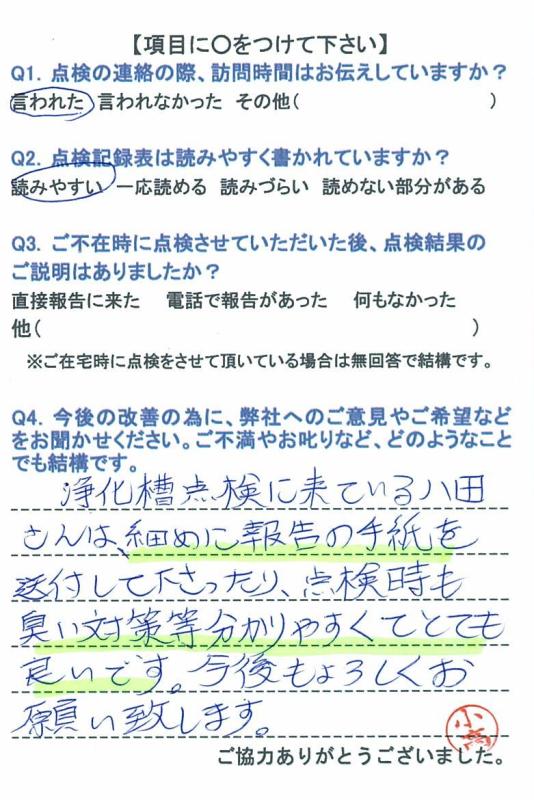 【項目に〇をつけて下さい】
Q1. 点検の連絡の際、訪問時間はお伝えしていますか？
言われた 言われなかった その他( )
Q2. 点検記録表は読みやすく書かれていますか？
読みやすい 一応読める 読みづらい 読めない部分がある
Q3. ご不在時に点検させていただいた後、点検結果の
ご説明はありましたか？
直接報告に来た 電話で報告があった 何もなかった
他( )
※ご在宅時に点検をさせて頂いている場合は無回答で結構です。
Q4. 今後の改善の為に、弊社へのご意見やご希望など
をお聞かせください。ご不満やお叱りなど、どのようなこと
でも結構です。
浄化槽点検に来ている八田
さんは、細めに報告の手紙を
送付して下さったり、点検時も
臭い対策等分かりやすくてとても
良いです。今後もよろしくお
願い致します。
ご協力ありがとうございました。